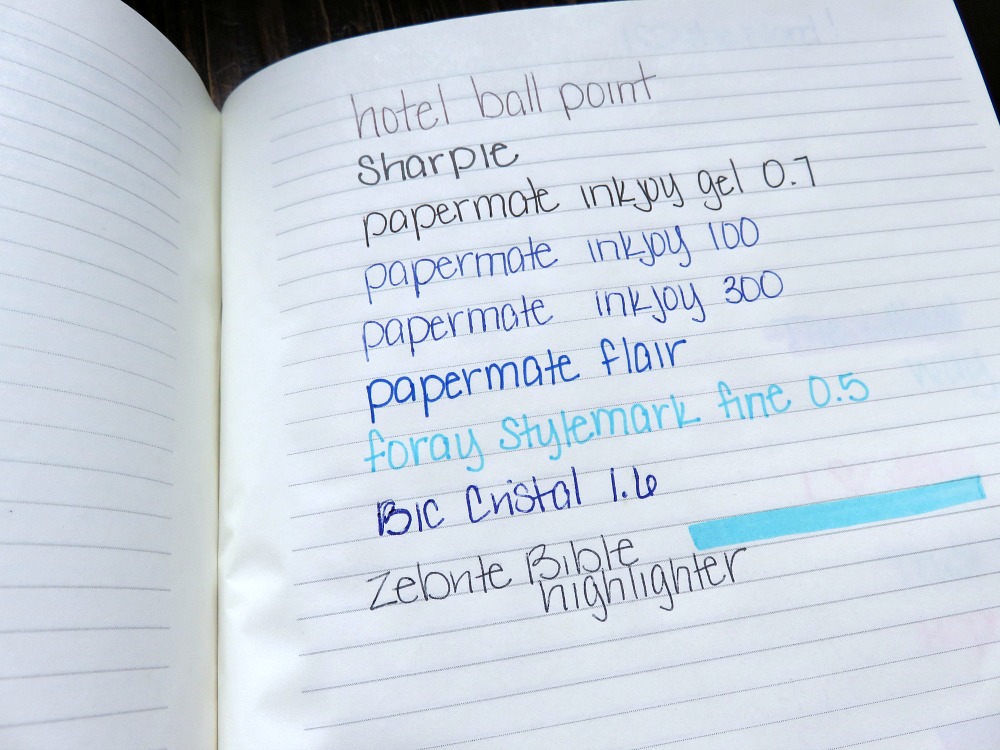 hotel ball point
Sharpie
papermate inkjoy gel 0.7
papermate inkjoy 100
papermate inkjoy 300
papermate flair
foray stylemark fine 0.5
Bic Cristal 1.6
Zebrite Bible
highlighter